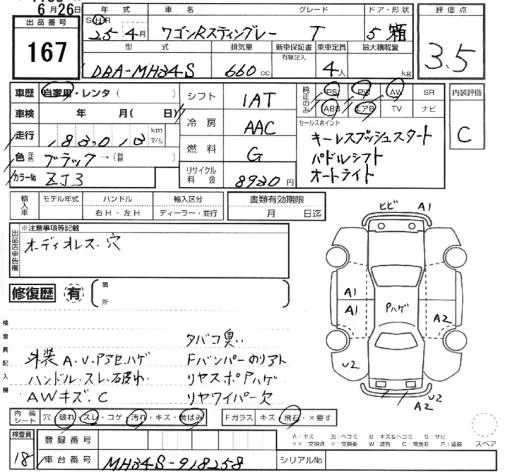 6月26日
出品番号
167
年式 車名 グレード ドア・形状
S・H 25年4月 ワゴンRスティングレー T 5 箱
型式 排気量 新車保証書 乗車定員 最大積載量
有無記入
DBA-MH34S 660cc 4人 kg
評価点
3.5
車歴 自家用・レンタ( )
シフト 1AT
PS PW AW SR
ABS エアB TV ナビ
内装評価
C
車検 年 月( 日)
冷房 AAC
セールスポイント
キーレスプッシュスタート
パドルシフト
オートライト
走行 km
燃料 G
色 ブラック→
カラーNo. ZJ3
リサイクル料金 8920円
輸入車 モデル年式 ハンドル 輸入区分
右H・左H ディーラー・並行
書類有効期限
月 日迄
※注意事項等記載
オーディオレス.穴
修復歴 有
箇所
検査員記入欄
タバコ臭い
外装A.U.P.アセ.ハゲ Fバンパーのリアト
ハンドル.スレ.破れ. リヤスポPハゲ
AWキズ.C リヤワイパー欠
ヒビ A1
A1
A1
Pハゲ
A2
U2
U2
A2
内装シート 穴・破れ・スレ・コゲ・汚れ・キズ・黄ばみ
Fガラス キズ・飛石・×要す
検査員 18
登録番号
車台番号 MH34S-918258
シリアルNo.
スペア